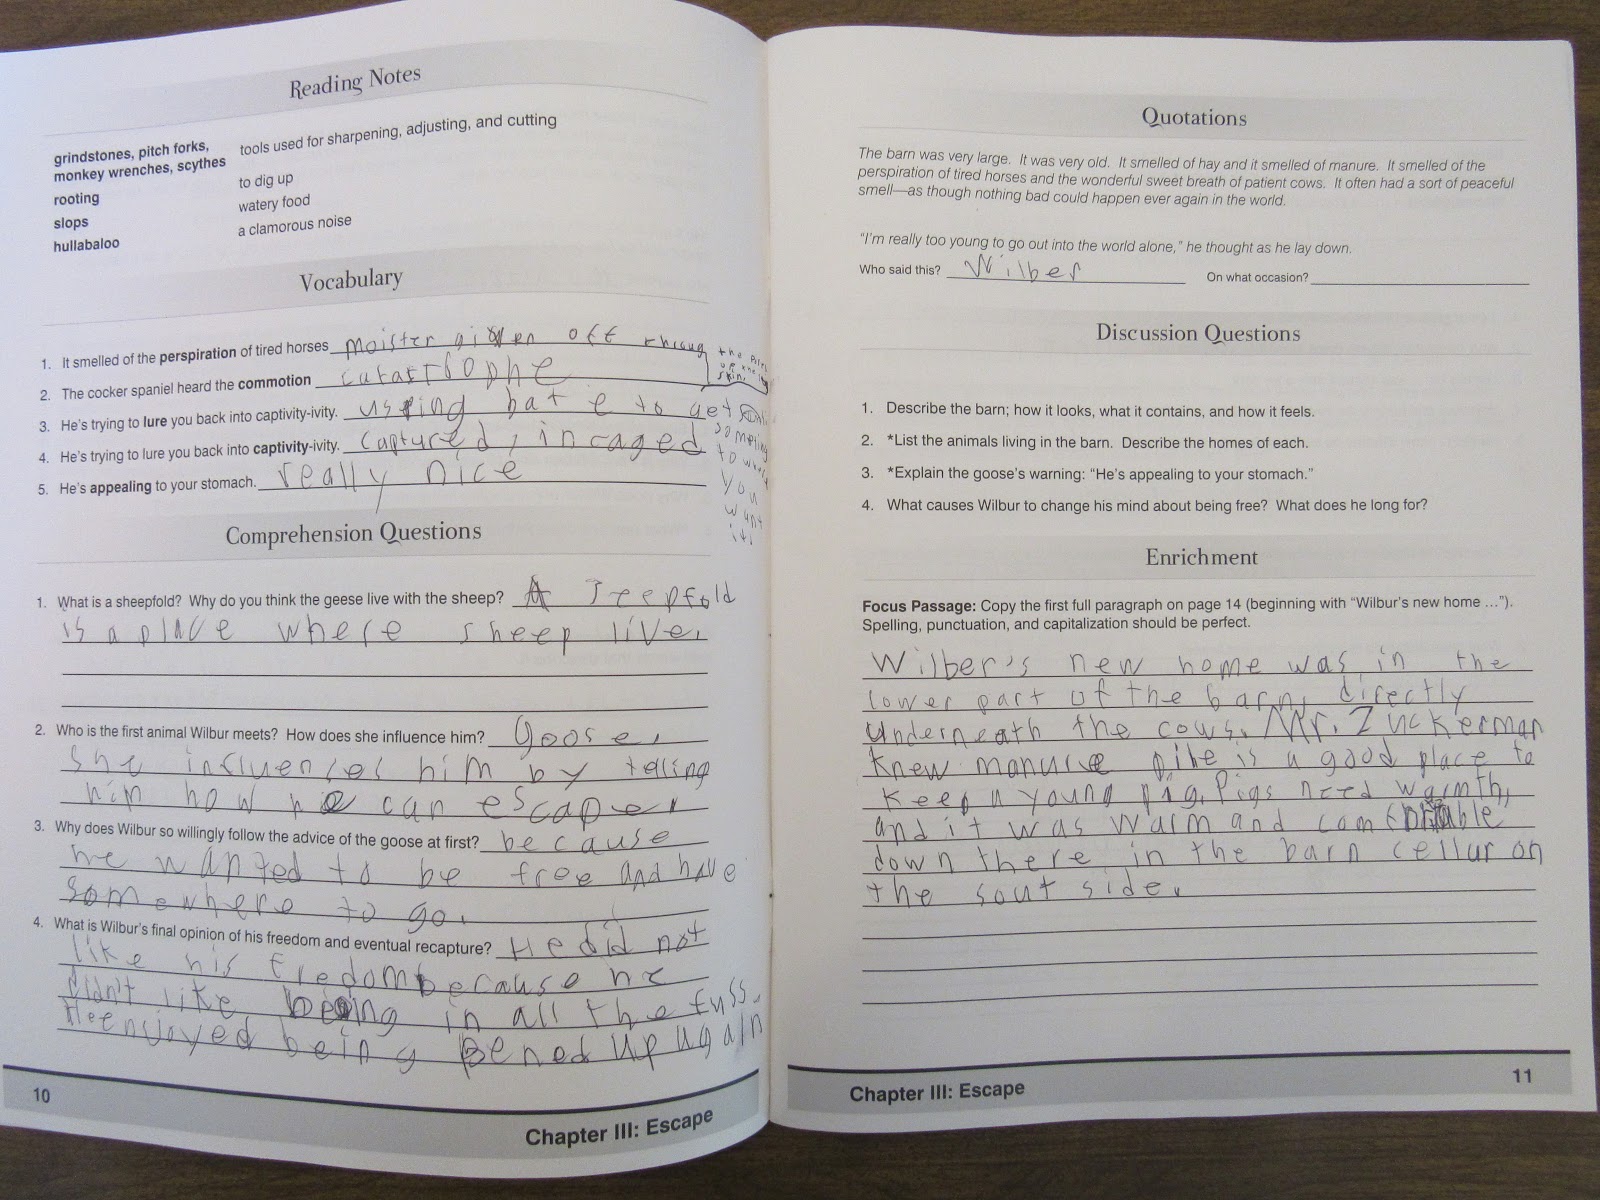 Reading Notes
grindstones, pitch forks, tools used for sharpening, adjusting, and cutting
monkey wrenches, scythes
rooting to dig up
slops watery food
hullabaloo a clamorous noise
Vocabulary
1. It smelled of the perspiration of tired horses moister given off throug the
skin.
2. The cocker spaniel heard the commotion catastrophe
3. He's trying to lure you back into captivity-ivity. using bate to get
to
you
want
it.
4. He's trying to lure you back into captivity-ivity. captured, incaged
5. He's appealing to your stomach. really nice
Comprehension Questions
1. What is a sheepfold? Why do you think the geese live with the sheep? A Jeepfold
is a place where sheep live.
2. Who is the first animal Wilbur meets? How does she influence him? Goose.
she influenses him by telling
him how he can escape.
3. Why does Wilbur so willingly follow the advice of the goose at first? because
he wanted to be free and have
somewhere to go.
4. What is Wilbur's final opinion of his freedom and eventual recapture? He did not
like his fredom because he
didn't like being in all the fuss.
He enjoyed being pened up again
10
Chapter III: Escape
Quotations
The barn was very large. It was very old. It smelled of hay and it smelled of manure. It smelled of the
perspiration of tired horses and the wonderful sweet breath of patient cows. It often had a sort of peaceful
smell—as though nothing bad could happen ever again in the world.
"I'm really too young to go out into the world alone," he thought as he lay down.
Who said this? Wilber On what occasion?
Discussion Questions
1. Describe the barn; how it looks, what it contains, and how it feels.
2. *List the animals living in the barn. Describe the homes of each.
3. *Explain the goose's warning: "He's appealing to your stomach."
4. What causes Wilbur to change his mind about being free? What does he long for?
Enrichment
Focus Passage: Copy the first full paragraph on page 14 (beginning with "Wilbur's new home ...").
Spelling, punctuation, and capitalization should be perfect.
Wilber's new home was in the
lower part of the barn, directly
underneath the cows. Mr. Zuckerman
knew manure pile is a good place to
keep a young pig. Pigs need warmth,
and it was warm and comfortable
down there in the barn cellur on
the sout side.
Chapter III: Escape
11